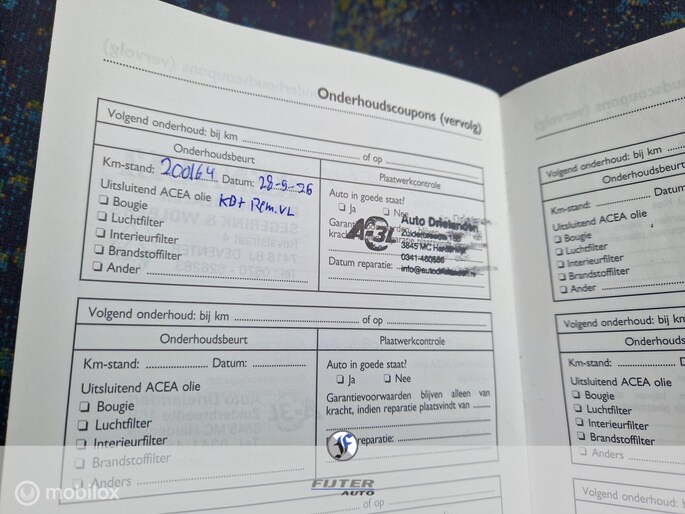 Onderhoudscoupons (vervolg)
Volgend onderhoud: bij km of op
Onderhoudsbeurt Plaatwerkcontrole
Km-stand: 200164 Datum: 28-9-26
Uitsluitend ACEA olie KB+ Rem.VL
Bougie
Luchtfilter
Interieurfilter
Brandstoffilter
Ander
Auto in goede staat?
Ja Nee
Garantie
kracht,
Datum reparatie:
A-3L
Auto Drielanden
3845 MC
0341-460556
Volgend onderhoud: bij km of op
Onderhoudsbeurt Plaatwerkcontrole
Km-stand: Datum:
Uitsluitend ACEA olie
Bougie
Luchtfilter
Interieurfilter
Brandstoffilter
Anders
Auto in goede staat?
Ja Nee
Garantievoorwaarden blijven alleen van
kracht, indien reparatie plaatsvindt van
reparatie:
Volgend onderhoud: bij km
Onderhoudsbeurt
Km-stand: Datum
Uitsluitend ACEA olie
Bougie
Luchtfilter
Interieurfilter
Brandstoffilter
Ander
Volgend onderhoud: bij km
Onderhouds
Km-stand:
Uitsluitend ACEA olie
Bougie
Luchtfilter
Interieurfilter
Brandstoffilter
Anders
Volgend onderhoud: bij
mobilox
F
FIJTER
AUTO